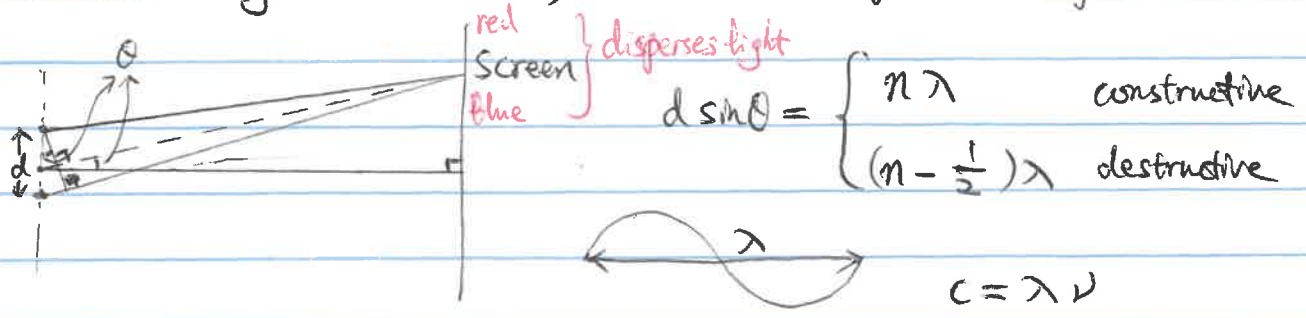 red
θ
Screen } disperses light
Blue
d
d sinθ = { nλ constructive
(n - 1/2)λ destructive
λ
c = λν